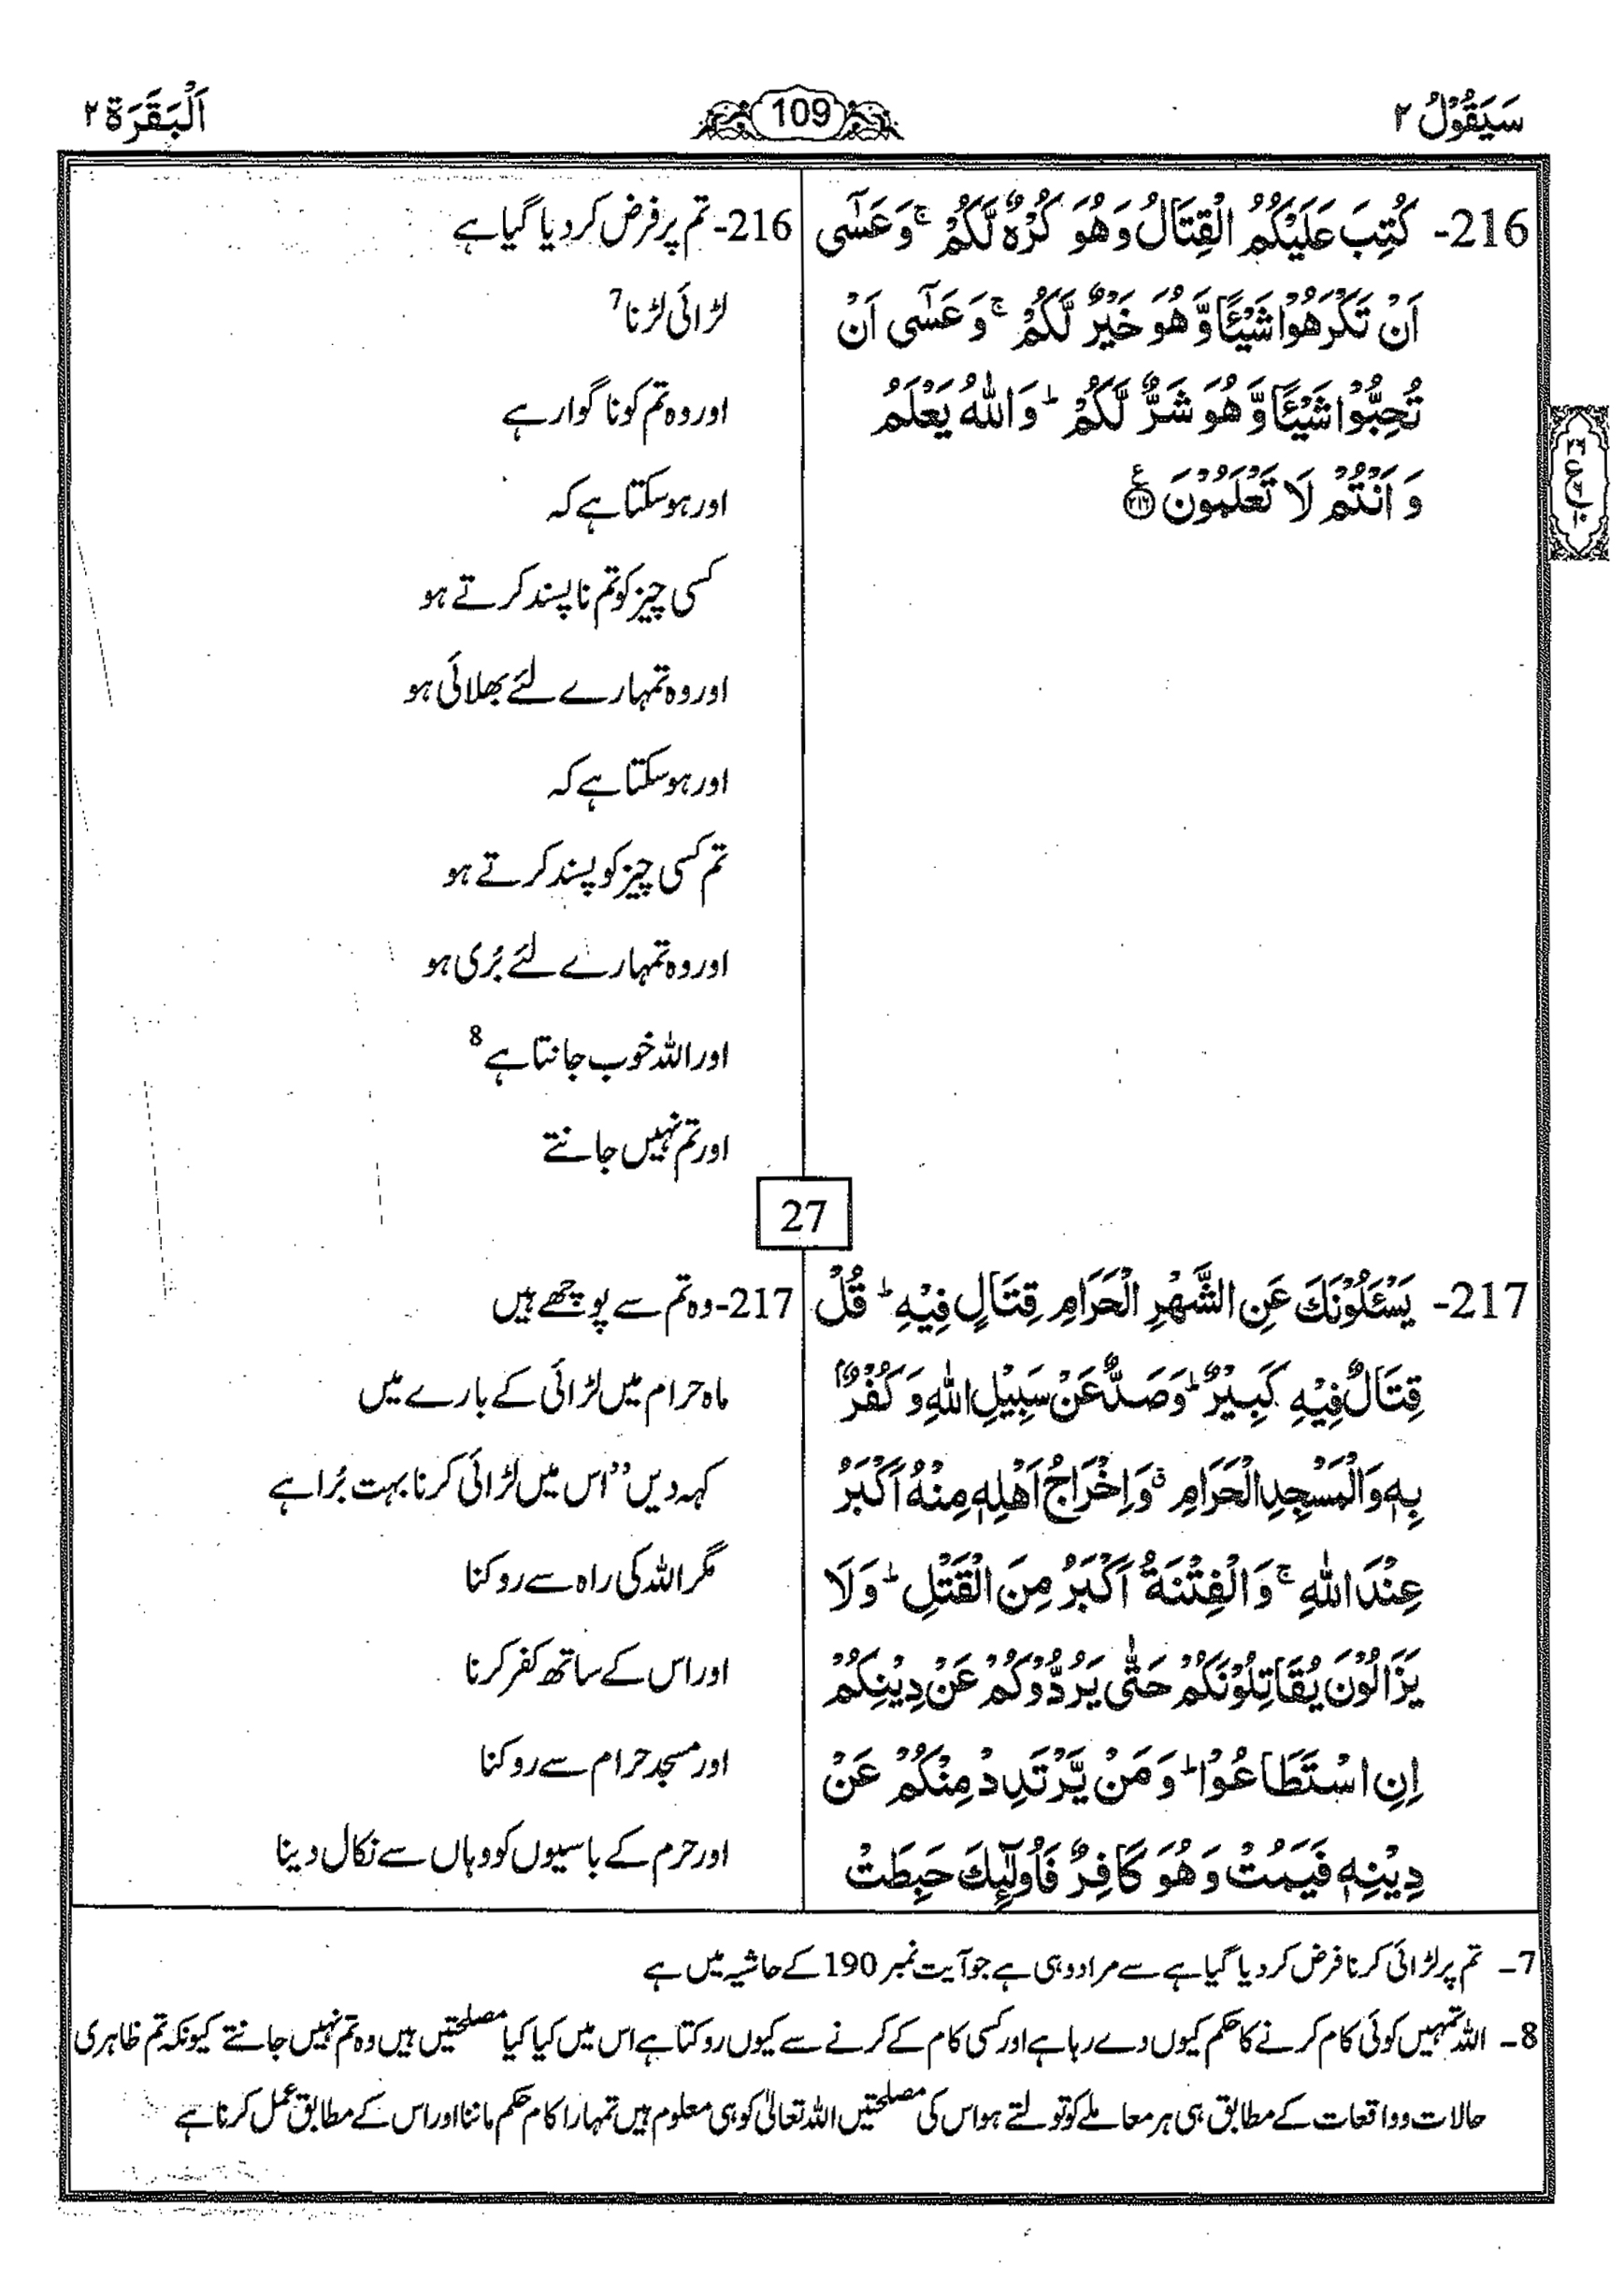 سَيَقُوْلُ ۲
109
اَلْبَقَرَة ۲
216- كُتِبَ عَلَيْكُمُ الْقِتَالُ وَهُوَ كُرْهٌ لَّكُمْ ۚ وَعَسٰٓى
اَنْ تَكْرَهُوْا شَيْـًٔا وَّهُوَ خَيْرٌ لَّكُمْ ۚ وَعَسٰٓى اَنْ
تُحِبُّوْا شَيْـًٔا وَّهُوَ شَرٌّ لَّكُمْ ؕ وَاللّٰهُ يَعْلَمُ
وَاَنْتُمْ لَا تَعْلَمُوْنَ ﴿۲۱۶﴾
216- تم پر فرض کر دیا گیا ہے
لڑائی لڑنا 7
اور وہ تم کو ناگوار ہے
اور ہو سکتا ہے کہ
کسی چیز کو تم ناپسند کرتے ہو
اور وہ تمہارے لئے بھلائی ہو
اور ہو سکتا ہے کہ
تم کسی چیز کو پسند کرتے ہو
اور وہ تمہارے لئے بُری ہو
اور اللہ خوب جانتا ہے 8
اور تم نہیں جانتے
27
217- يَسْـَٔلُوْنَكَ عَنِ الشَّهْرِ الْحَرَامِ قِتَالٍ فِيْهِ ؕ قُلْ
قِتَالٌ فِيْهِ كَبِيْرٌ ؕ وَصَدٌّ عَنْ سَبِيْلِ اللّٰهِ وَكُفْرٌۢ
بِهٖ وَالْمَسْجِدِ الْحَرَامِ ۗ وَاِخْرَاجُ اَهْلِهٖ مِنْهُ اَكْبَرُ
عِنْدَ اللّٰهِ ۚ وَالْفِتْنَةُ اَكْبَرُ مِنَ الْقَتْلِ ؕ وَلَا
يَزَالُوْنَ يُقَاتِلُوْنَكُمْ حَتّٰى يَرُدُّوْكُمْ عَنْ دِيْنِكُمْ
اِنِ اسْتَطَاعُوْا ؕ وَمَنْ يَّرْتَدِدْ مِنْكُمْ عَنْ
دِيْنِهٖ فَيَمُتْ وَهُوَ كَافِرٌ فَاُولٰٓئِكَ حَبِطَتْ
217- وہ تم سے پوچھے ہیں
ماہ حرام میں لڑائی کے بارے میں
کہہ دیں ’’اس میں لڑائی کرنا بہت بُرا ہے
مگر اللہ کی راہ سے روکنا
اور اس کے ساتھ کفر کرنا
اور مسجد حرام سے روکنا
اور حرم کے باسیوں کو وہاں سے نکال دینا
7- تم پر لڑائی کرنا فرض کر دیا گیا ہے سے مراد وہی ہے جو آیت نمبر 190 کے حاشیہ میں ہے
8- اللہ تمہیں کوئی کام کرنے کا حکم کیوں دے رہا ہے اور کسی کام کے کرنے سے کیوں روکتا ہے اس میں کیا کیا مصلحتیں ہیں وہ تم نہیں جانتے کیونکہ تم ظاہری
حالات و واقعات کے مطابق ہی ہر معاملے کو تولتے ہو اس کی مصلحتیں اللہ تعالیٰ کو ہی معلوم ہیں تمہارا کام حکم ماننا اور اس کے مطابق عمل کرنا ہے